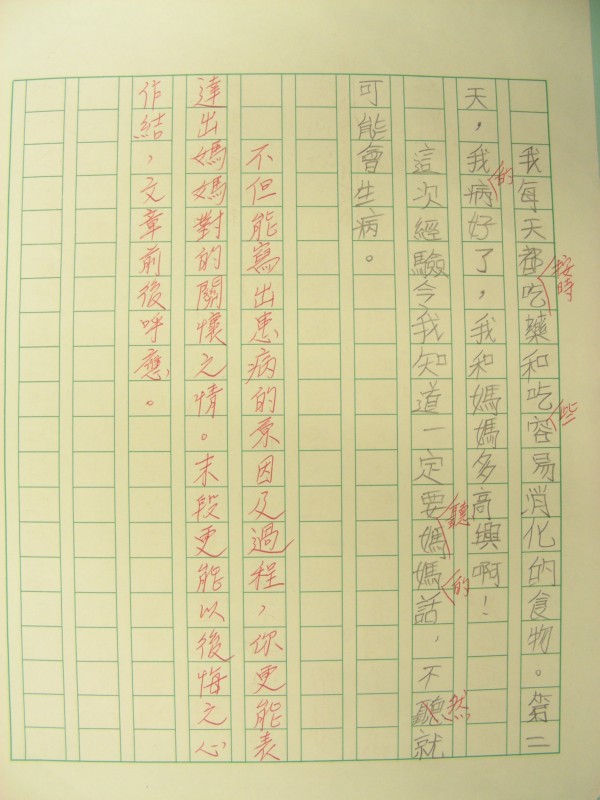 我每天都吃藥和吃容易消化的食物。第二
按時
些
天，我病好了，我和媽媽多高興啊！
的
這次經驗令我知道一定要媽媽話，不聽就
聽
的
然
可能會生病。
不但能寫出患病的原因及過程，你更能表
達出媽媽對的關懷之情。末段更能以後悔之心
作結，文章前後呼應。